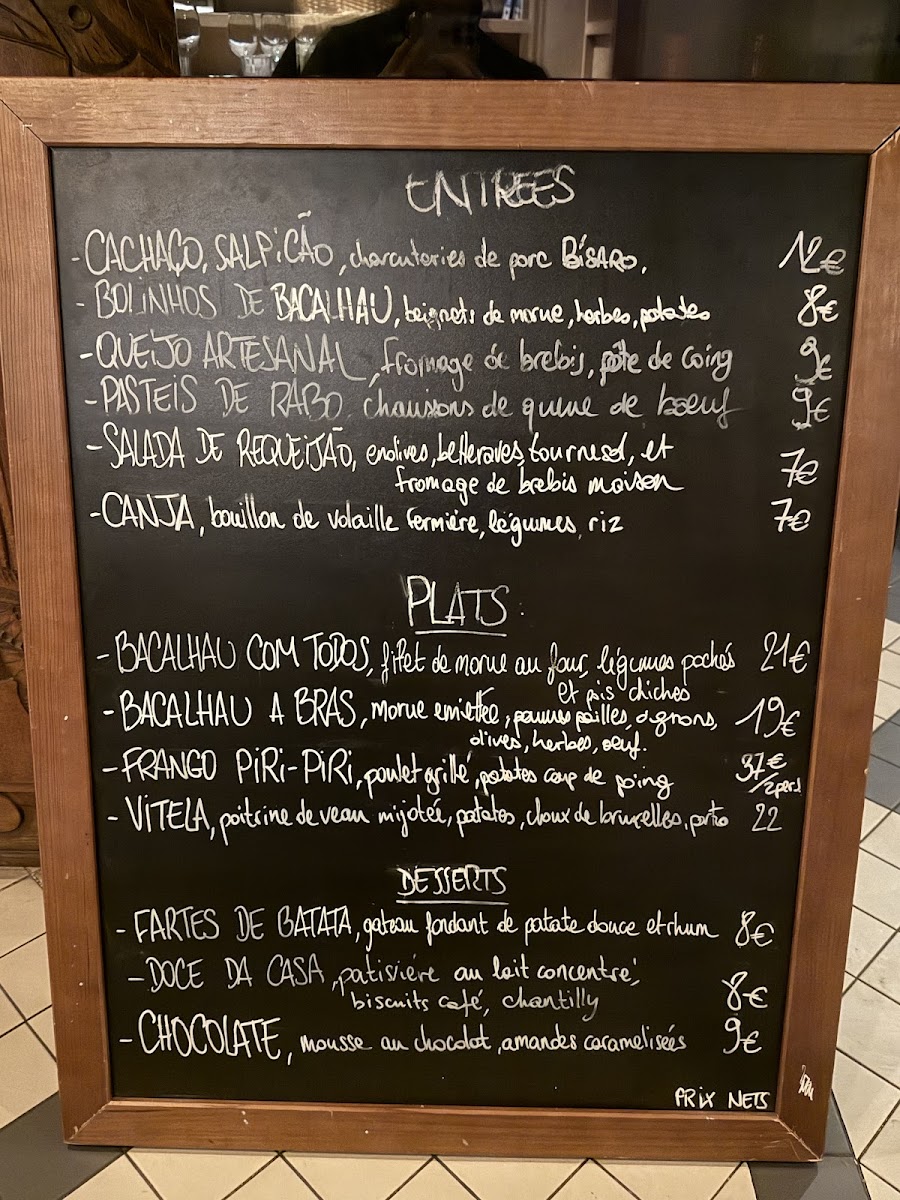 ENTREES
- CACHAÇO, SALPICÃO, charcuteries de porc BÍSARO, 12€
- BOLINHOS DE BACALHAU, beignets de morue, herbes, patates 8€
- QUEIJO ARTESANAL, fromage de brebis, pâte de coing 9€
- PASTEIS DE RABO, chaussons de queue de boeuf 9€
- SALADA DE REQUEIJÃO, endives, betteraves, tournesol, et
fromage de brebis maison 7€
- CANJA, bouillon de volaille fermière, légumes, riz 7€
PLATS
- BACALHAU COM TODOS, filet de morue au four, légumes pochés 21€
et pois chiches
- BACALHAU A BRAS, morue emiettée, pommes pailles, oignons, 19€
olives, herbes, oeuf.
- FRANGO PIRI-PIRI, poulet grillé, patates coup de poing 37€
/2pers
- VITELA, poitrine de veau mijotée, patates, choux de bruxelles, porto 22
DESSERTS
- FARTES DE BATATA, gateau fondant de patate douce et rhum 8€
- DOCE DA CASA, patisière au lait concentré,
biscuits café, chantilly 8€
- CHOCOLATE, mousse au chocolat, amandes caramelisées 9€
PRIX NETS